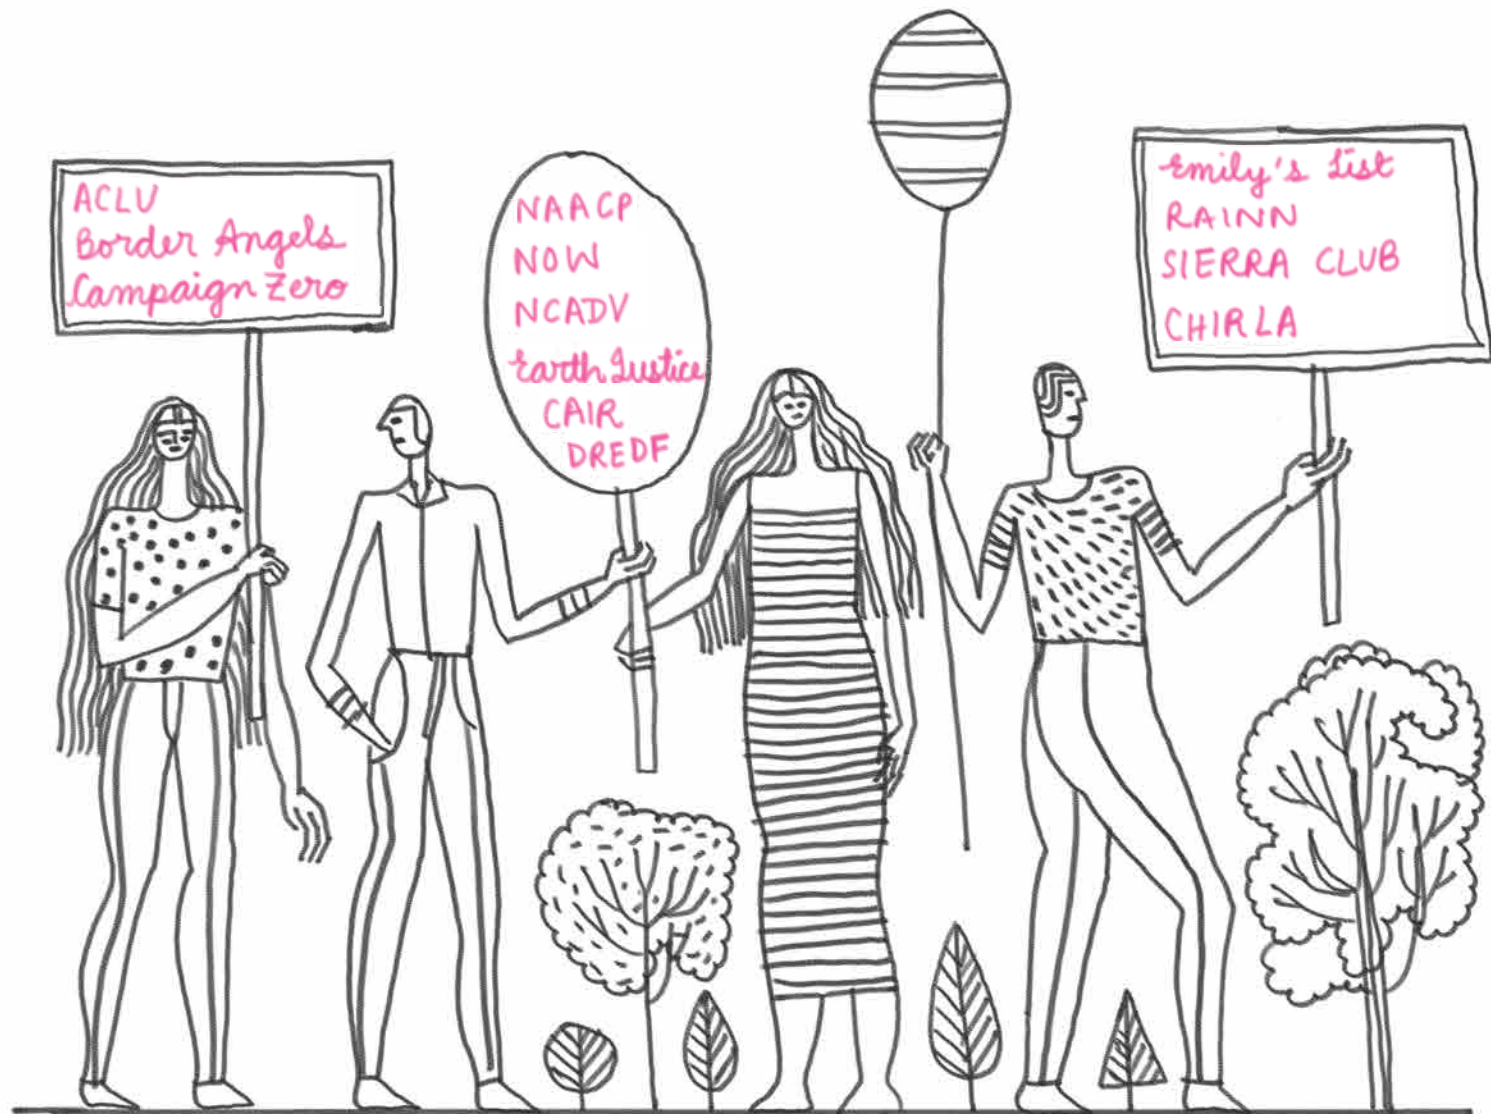 ACLU
Border Angels
Campaign Zero
NAACP
NOW
NCADV
Earth Justice
CAIR
DREDF
Emily's List
RAINN
SIERRA CLUB
CHIRLA